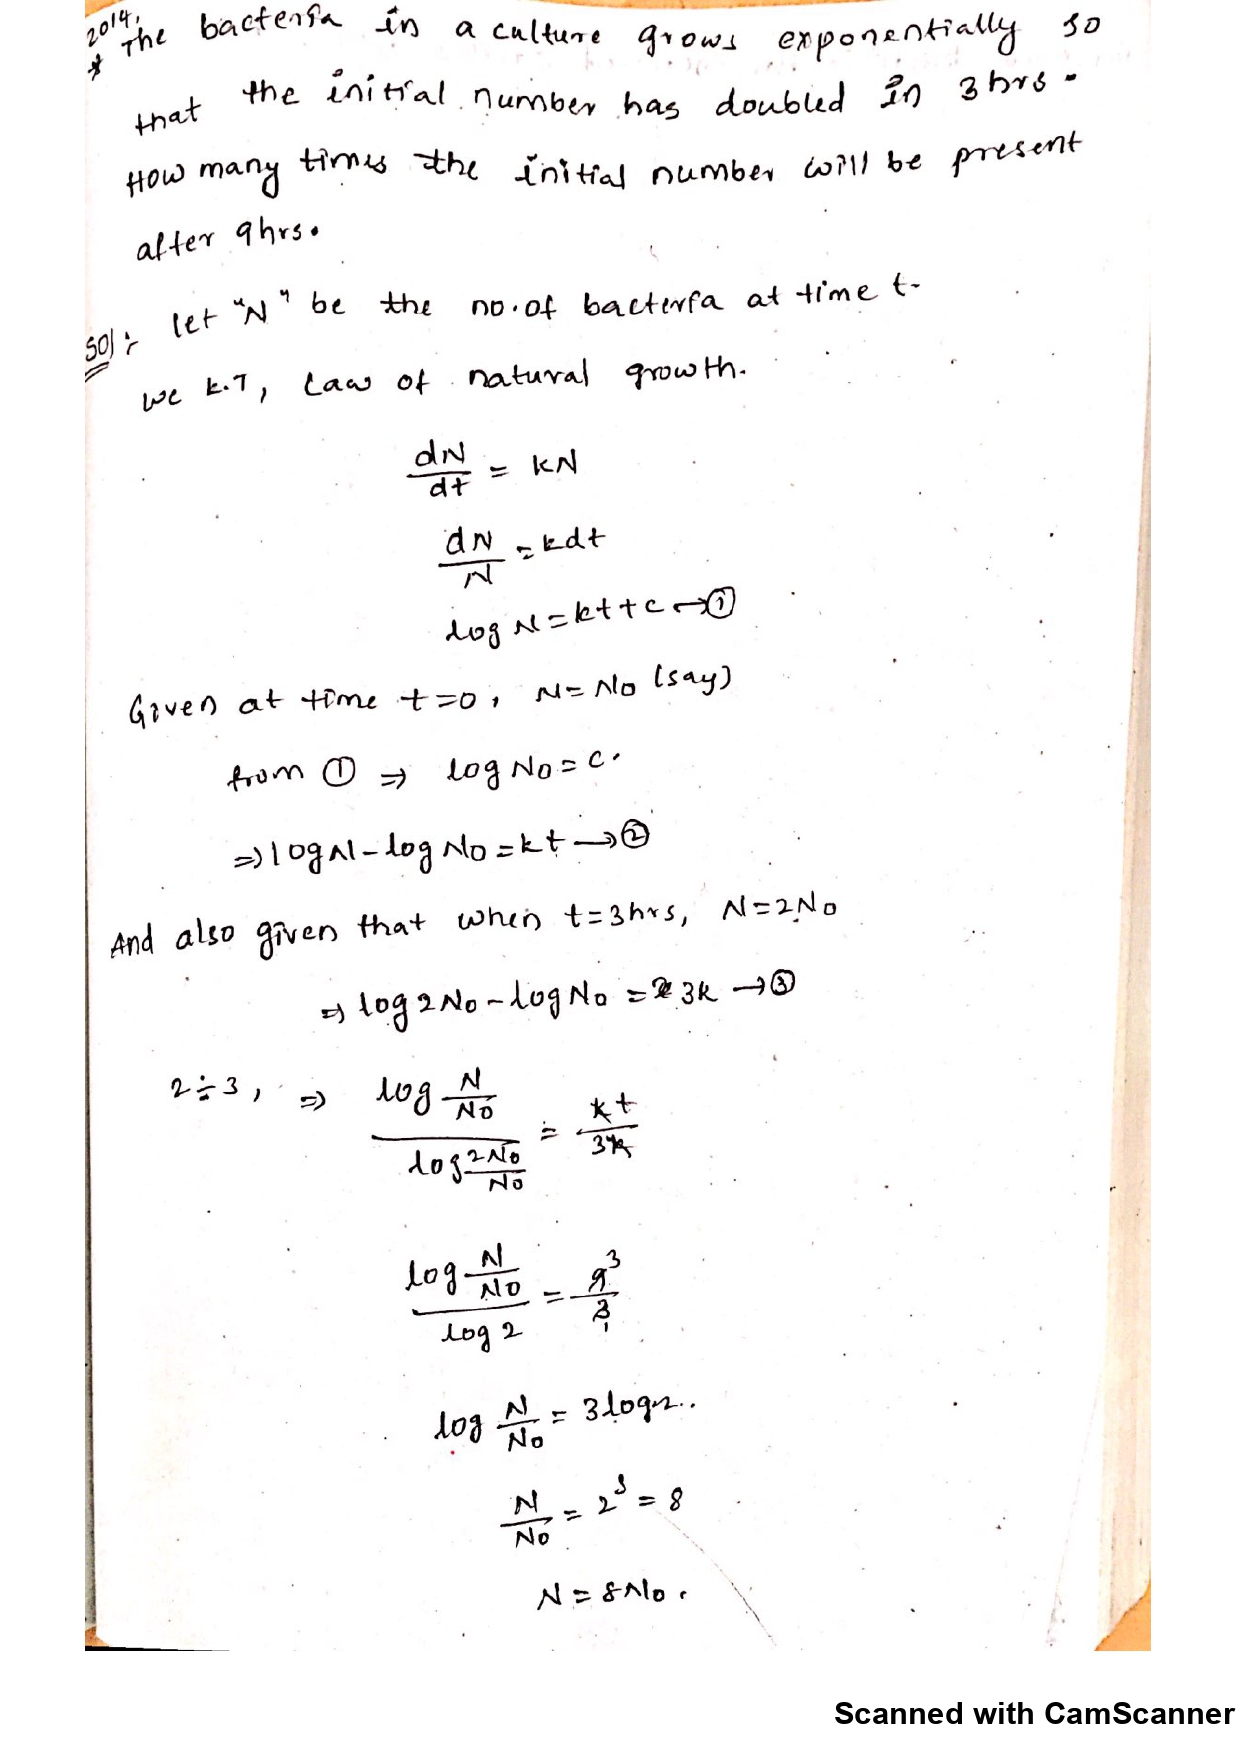 2014,
* The bacteria in a culture grows exponentially so
that the initial number has doubled in 3hrs.
How many times the initial number will be present
after 9hrs.
Sol:- let "N" be the no. of bacteria at time t.
we k.T, Law of natural growth.
dN/dt = kN
dN/N = kdt
log N = kt + c → ①
Given at time t=0, N = N0 (say)
from ① ⇒ log N0 = c.
⇒ log N - log N0 = kt → ②
And also given that when t=3hrs, N=2N0
⇒ log 2N0 - log N0 = 3k → ③
2÷3, ⇒ (log N/N0)/(log 2N0/N0) = kt/3k
(log N/N0)/(log 2) = 9/3 3 1
log N/N0 = 3log2..
N/N0 = 2³ = 8
N = 8N0.
Scanned with CamScanner